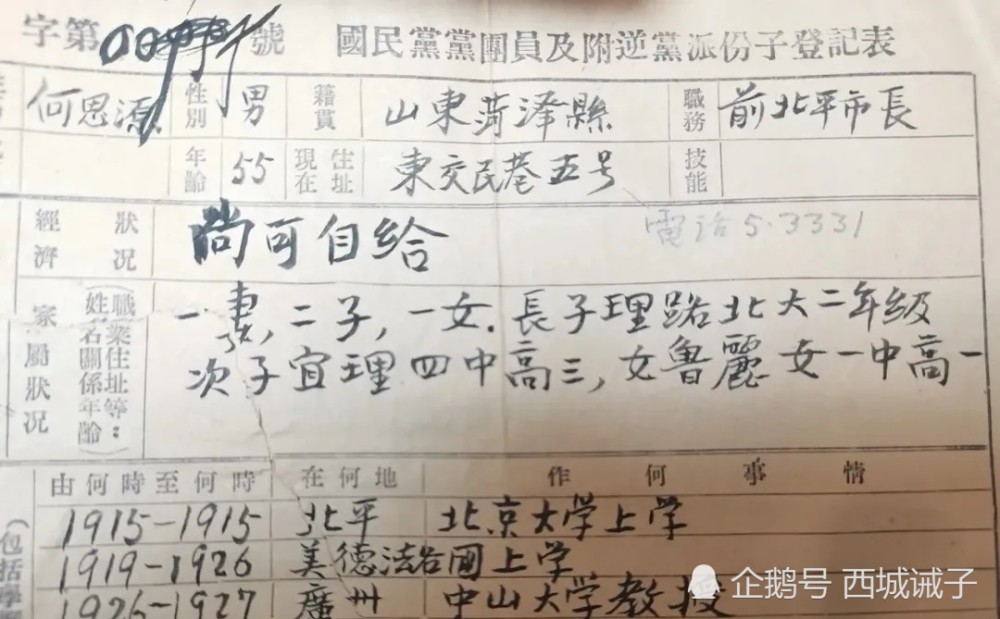 字第 號 國民黨黨團員及附逆黨派份子登記表
何思源 性別 男 籍貫 山東菏泽縣 職務 前北平市長
年齡 55 現在住址 東交民巷五号 技能
經濟狀况 尚可自给 電话5.3331
家屬狀况 (姓名職業住址等:關係年齡) 一妻,二子,一女.長子理路北大二年級
次子宜理四中高三,女魯麗女一中高一
由何時至何時 在何地 作何事情
(包括學
1915-1915 北平 北京大学上学
1919-1926 美德法各國上学
1926-1927 廣州 中山大学教授
企鹅号 西城诫子